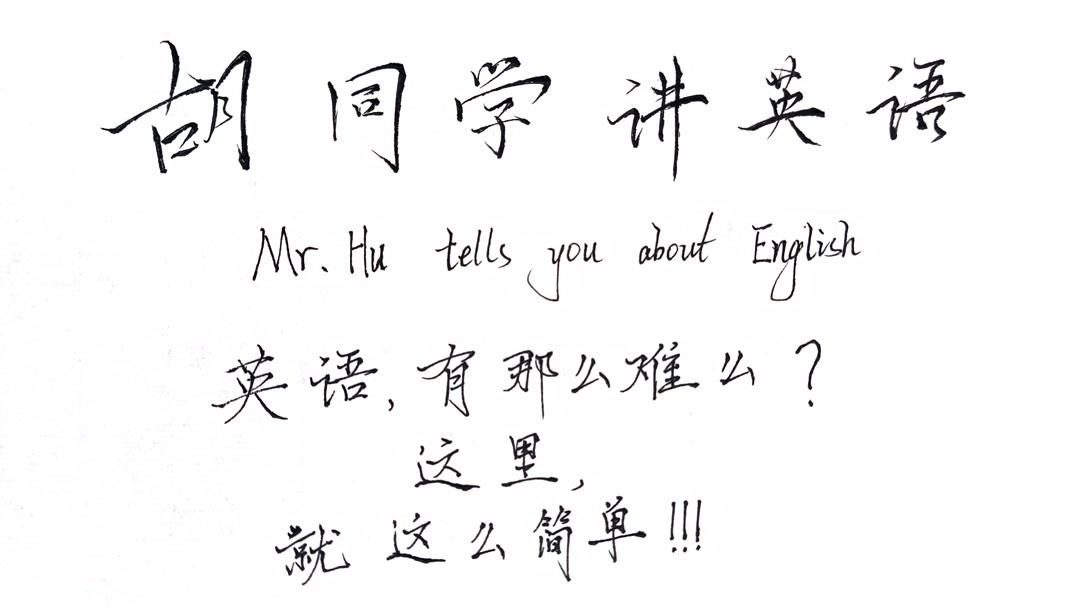 胡同学讲英语
Mr. Hu tells you about English
英语,有那么难么?
这里,
就这么简单!!!